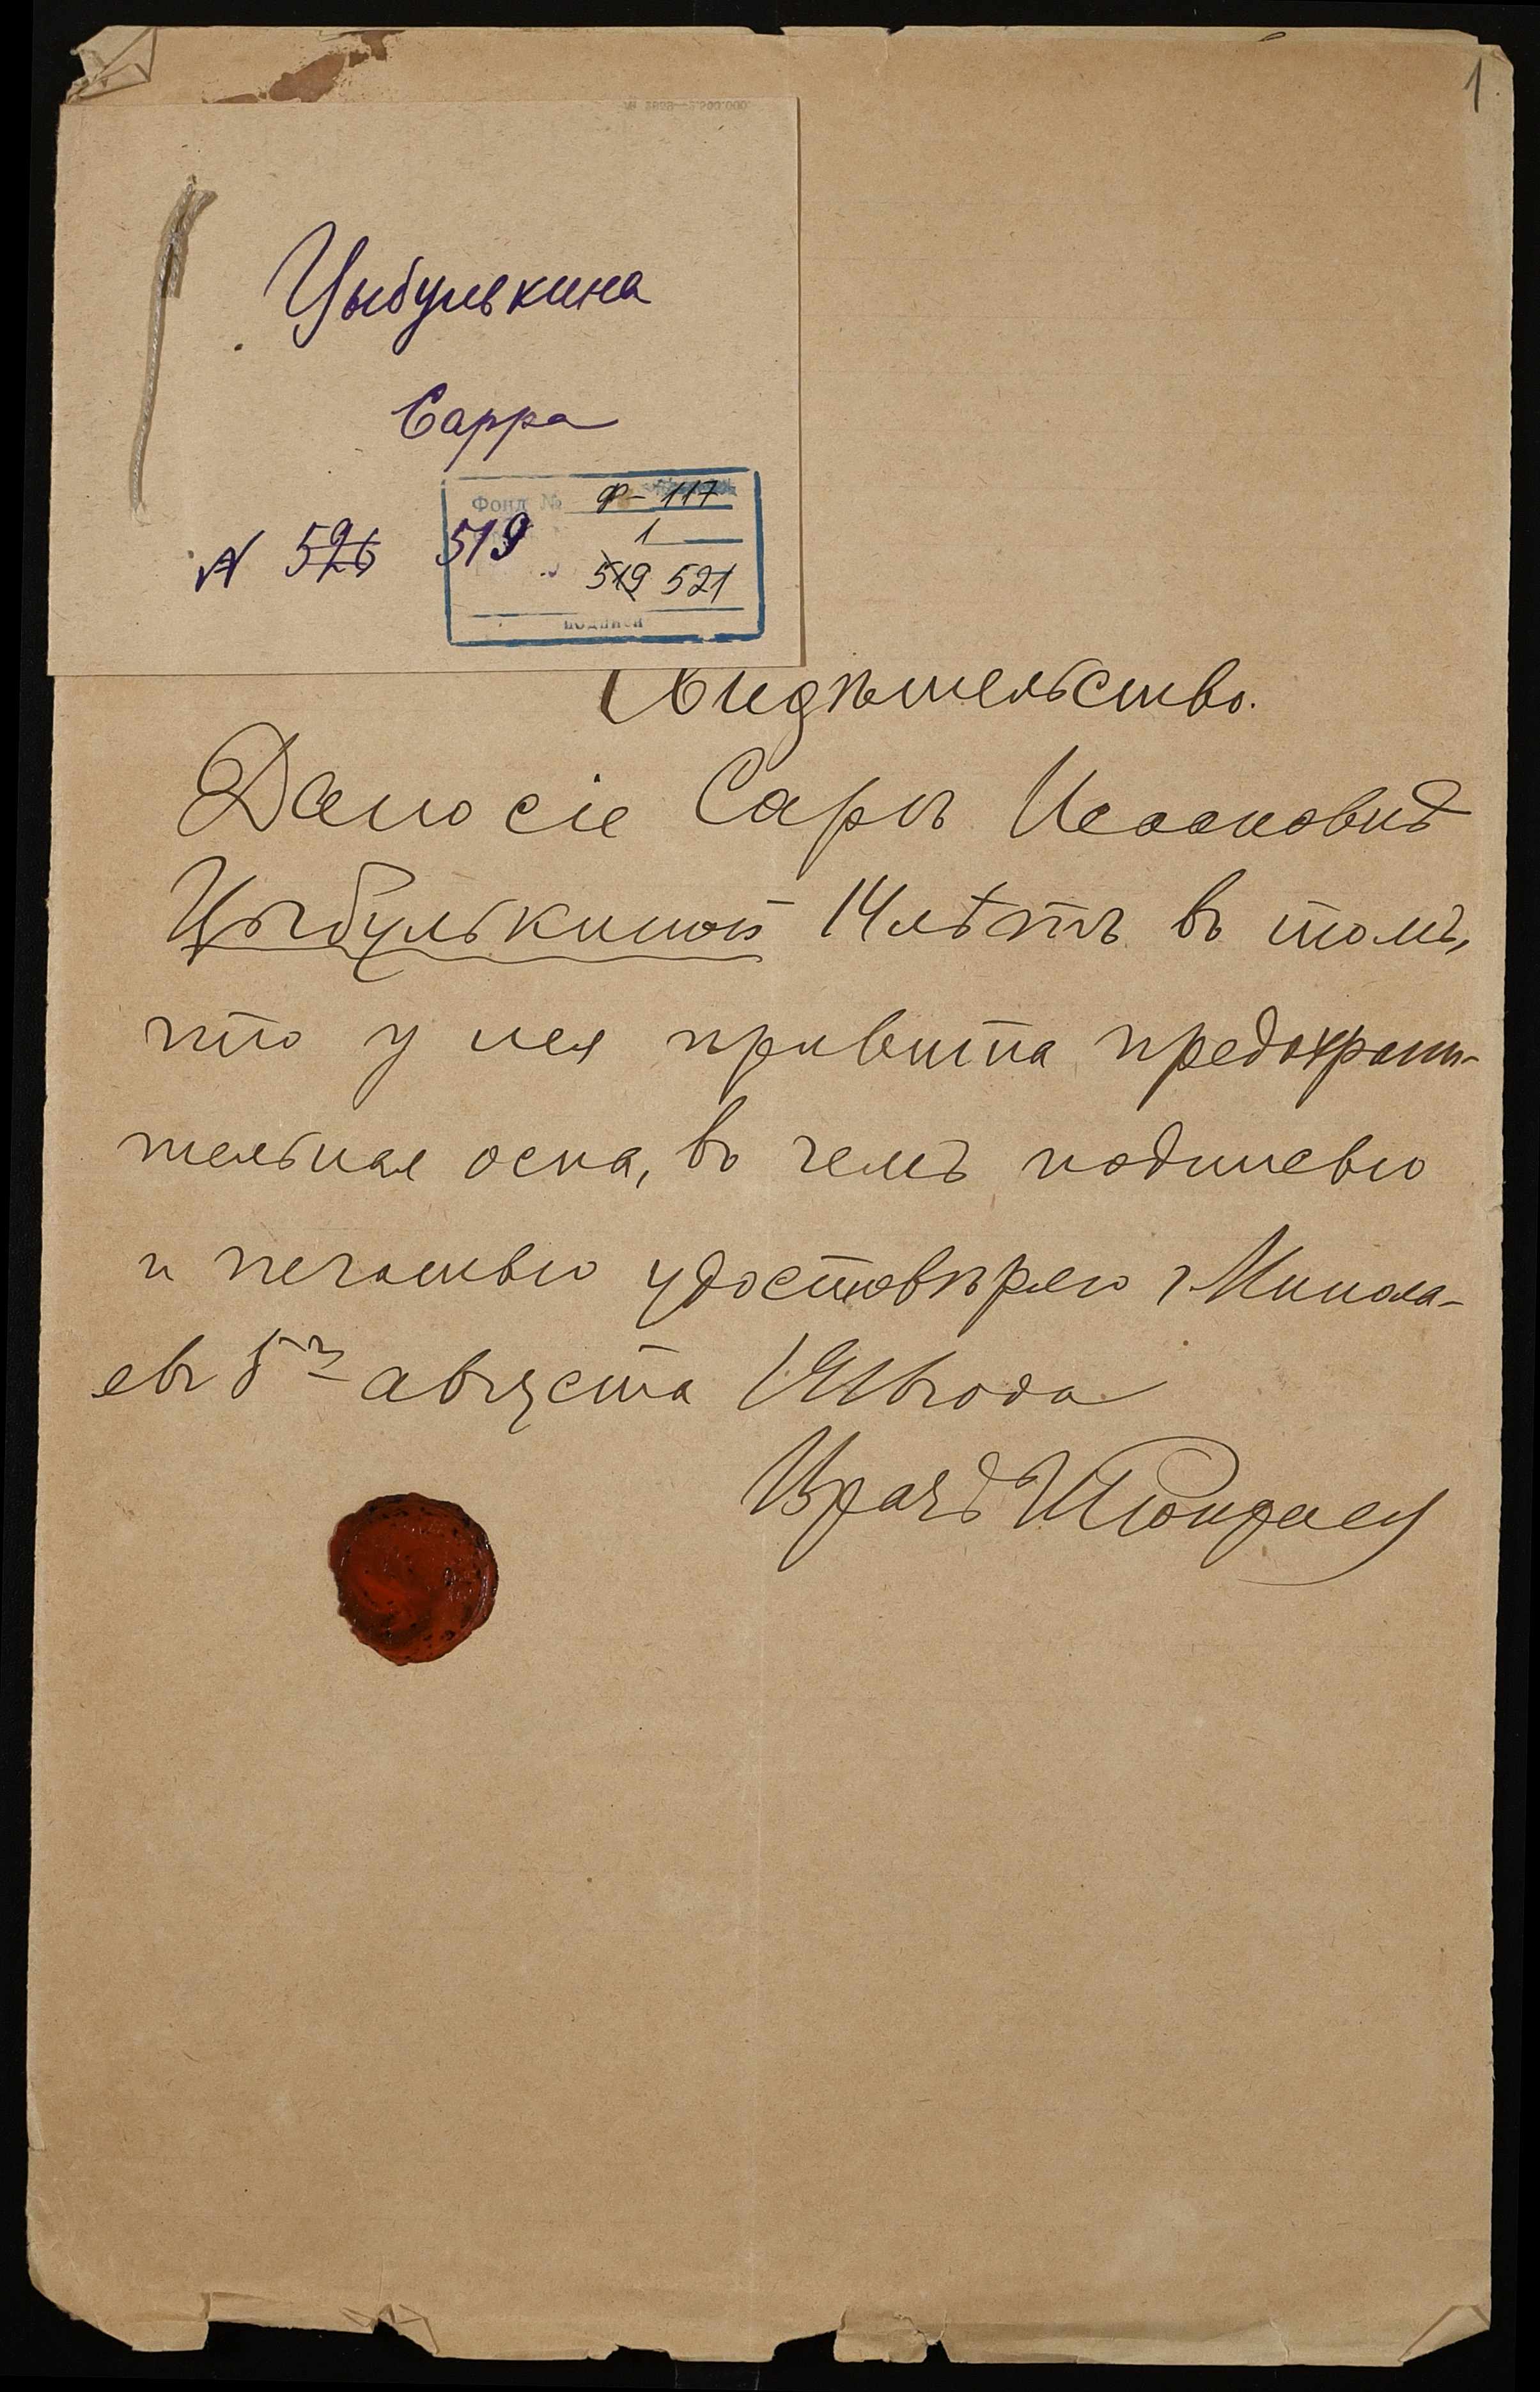 1
№ 2659—2.500.000
Цыбулькина
Сарра
N 526 519
Фонд № Ф-117
1
519 521
подписи
Свидѣтельство.
Дано сіе Сарѣ Исааковнѣ
Цыбулькиной 14 лѣтъ въ томъ,
что у нея привита предохрани-
тельная оспа, въ чемъ подписью
и печатью удостовѣряю г Никола-
евъ 5го августа года
Врачъ